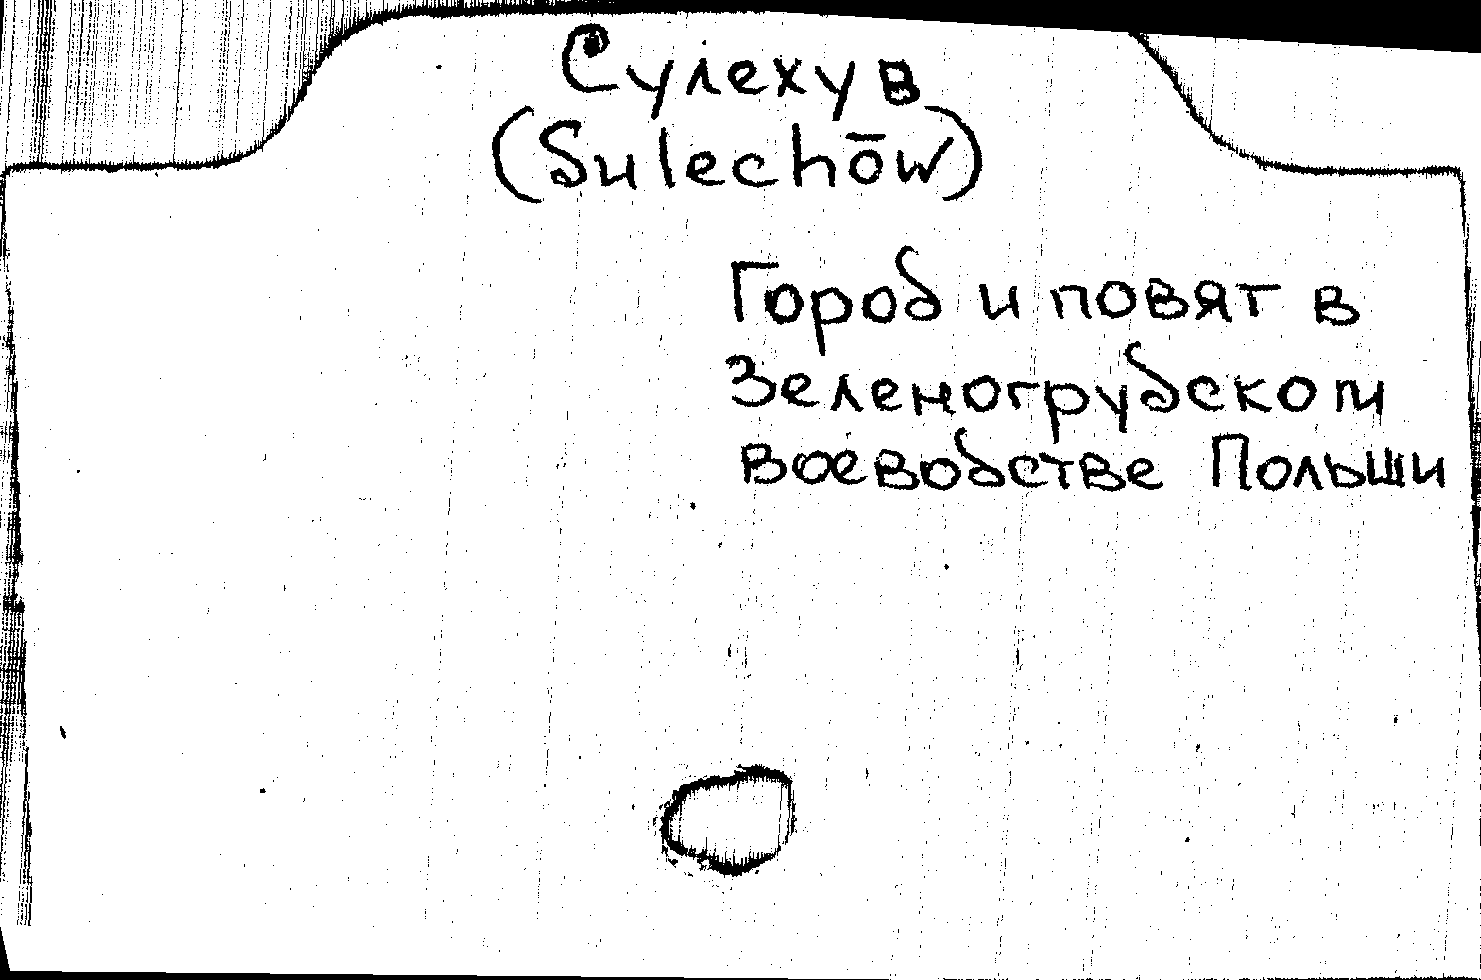 Сулехув
(Sulechōw)
Город и повят в
Зеленогрудском
воеводстве Польши